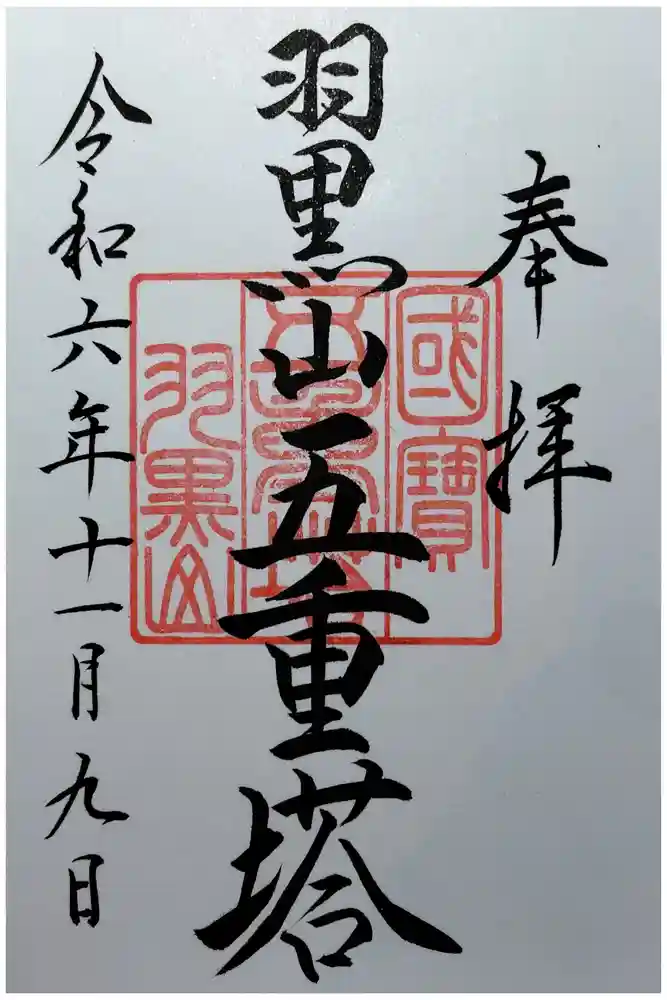 奉拝
羽黒山五重塔
令和六年十一月九日
國寳
五重塔
羽黒山